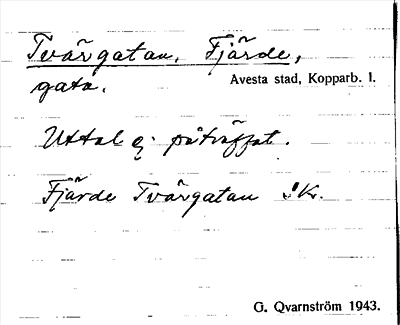 Tvärgatan, Fjärde,
gata.
Avesta stad, Kopparb. l.
Uttal ej påträffat.
Fjärde Tvärgatan
G. Qvarnström 1943.